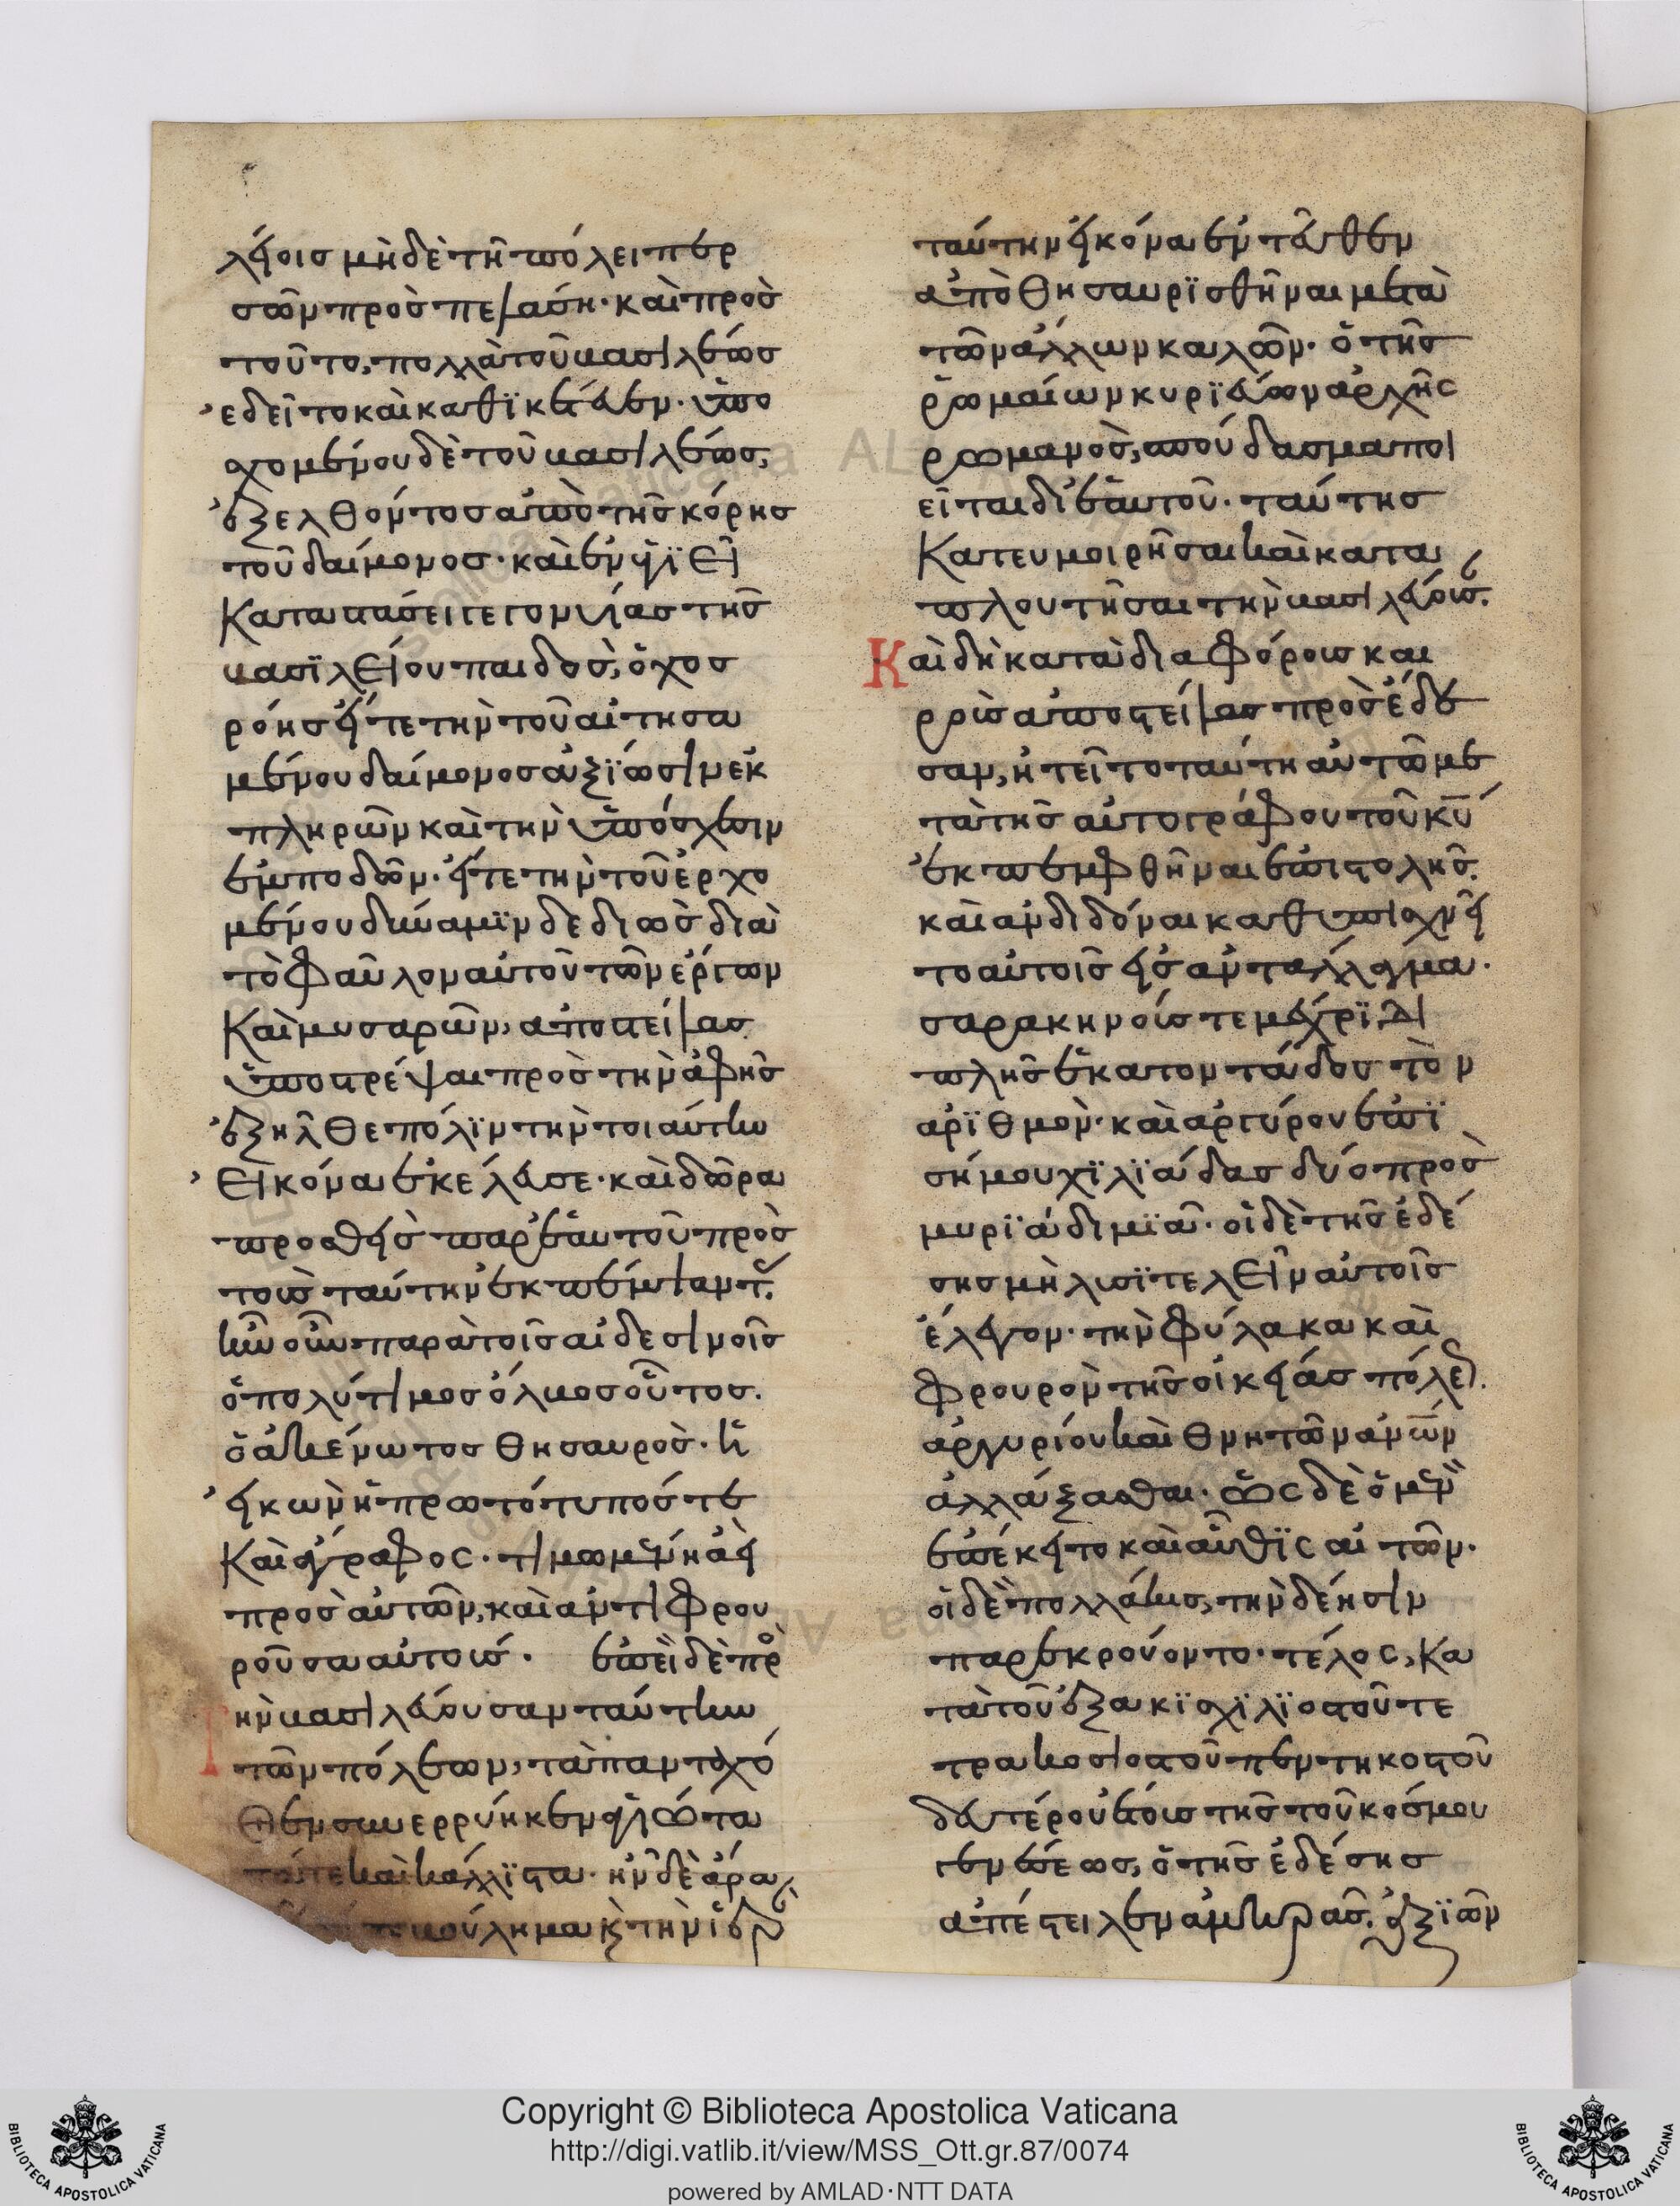 λείοις μὴδὲ τῆ πόλει περ
σῶν προσπελάση· καὶ πρὸς
τοῦτο, πολλὰ τοῦ βασιλέως
ἐδεῖτο καὶ καθϊκέτευεν· ὑπο
σχομένου δὲ τοῦ βασιλέως,
ἐξελθόντος ἀπὸ τῆς κόρης
τοῦ δαίμονος· καὶ ἐν ὑγϊεῖ
καταστάσει γεγονυίας τῆς
βασϊλείου παιδὸς, ὁ χοσ
ρόης εἴτε τὴν τοῦ αἰτησα
μένου δαίμονος ἀξϊωσιν ἐκ
πληρῶν καὶ τὴν ὑπόσχεσιν
ἐμποδῶν· εἴτε τὴν τοῦ ἐρχο
μένου δύναμϊν δεδιὼς διὰ
τὸ φαῦλον αὐτοῦ τῶν ἔργων
καὶ μυσαρῶν, ἀποστείλας
ὑποστρέψαι πρὸς τὴν ἀφῆς
ἐξῆλθε πόλϊν τὴν τοιαύτην
εἰκόνα ἐκέλευσε· καὶ δῶρα
προσθεὶς παρἑαυτοῦ πρὸς
τοὺς ταύτην ἐκπέμψαντ.
ἦν οὖν παρὰ τοῖς αἰδεσινοῖς
ὁ πολύτιμος ὄλβος οὗτος.
ὁ ἀκένωτος θησαυρὸς· ἡ
εἰκὼν ἡ πρωτότυπός τε
καὶ ἄγραφος· τιμωμένη ἀεὶ
πρὸς αὐτῶν, καὶ ἀντιφρου
ροῦσα αὐτούς. ἐπεὶ δὲ πρὸ
τὴν βασιλεύουσαν ταύτην
τῶν πόλεων, τὰ πανταχό
θεν συνερρύηκεν τὰ
τε καὶ κάλλϊστα· ἦν δὲ ἄρα
βούλημα κ τὴν ἱερ
ταύτην εἰκόνα ἐνταῦθεν
ἀποθησαυρϊσθῆναι μετὰ
τῶν ἄλλων καλῶν· ὁ τῆς
ῥωμαίων κυρϊεύων ἀρχῆς
ρωμανὸς, σπούδασμα ποι
εῖται διἑαυτοῦ· ταύτης
κατευμοιρῆσαι καὶ κατα
πλουτῆσαι τὴν βασιλεύουσ.
Καὶ δὴ κατὰ διαφόρους και
ροὺς ἀποστείλας πρὸς ἔδε
σαν, ἠτεῖτο ταύτην αὐτῶ με
τὰ τῆς αὐτογράφου τοῦ κυ
ἐκπεμφθῆναι ἐπιστολῆς.
καὶ ἀνδιδόναι καθυπισχνεῖ
το αὐτοῖς εἰς ἀντάλλαγμα·
σαρακηνούς τε μέχρϊ δι
πλῆς ἑκατοντάδος τὸν
ἀρϊθμὸν· καὶ ἀργύρου ἐπϊ
σήμου χϊλϊάδας δύο πρὸς
μυρϊάδι μϊᾶ· οἱ δὲ τῆς ἐδέ
σης μὴ λυσϊτελεῖν αὐτοῖς
ἔλεγον· τὴν φύλακα καὶ
φρουρὸν τῆς οἰκείας πόλε.
ἀργυρίου καὶ θνητῶν ἀνων
ἀλλάξασθαι· ὡς δὲ ὁ μὲν
ἐπέκειτο καὶ αὖθϊς αἰτῶν·
οἱ δὲ πολλάκις, τὴν δέησιν
παρεκρούοντο· τέλος, κα
τὰ τοῦ ἑξακϊσχϊλϊοστοῦ τε
τρακοσιοστοῦ πεντηκοστοῦ
δευτέρου ἔτους τῆς τοῦ κόσμου
γενέσεως, ὁ τῆς ἐδέσης
ἀπέστειλεν ἀμηρᾶς. ἀξϊῶν
Copyright © Biblioteca Apostolica Vaticana
http://digi.vatlib.it/view/MSS_Ott.gr.87/0074
powered by AMLAD·NTT DATA
BIBLIOTECA APOSTOLICA VATICANA
BIBLIOTECA APOSTOLICA VATICANA